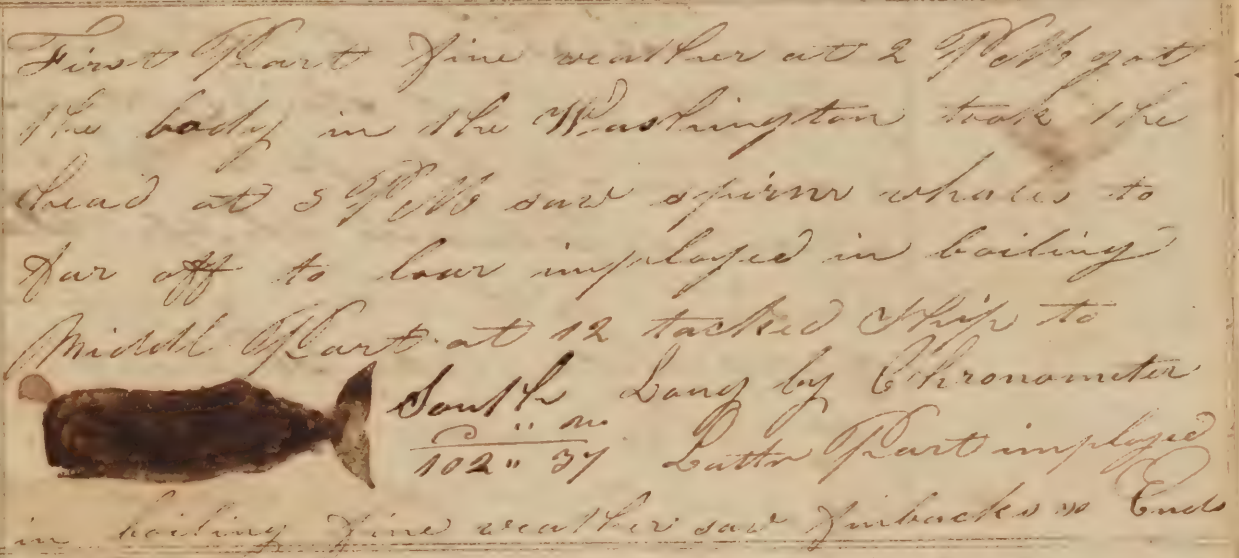 First Part fine weather at 2 PM got
the body in the Washington took the
head at 5 PM saw spirm whales to
far off to loar imployed in boiling
Middl Part at 12 tacked Ship to
South Long by Chronometer
102 " 37 Lattr Part imployed
in boiling fine weather saw finbacks so Ends